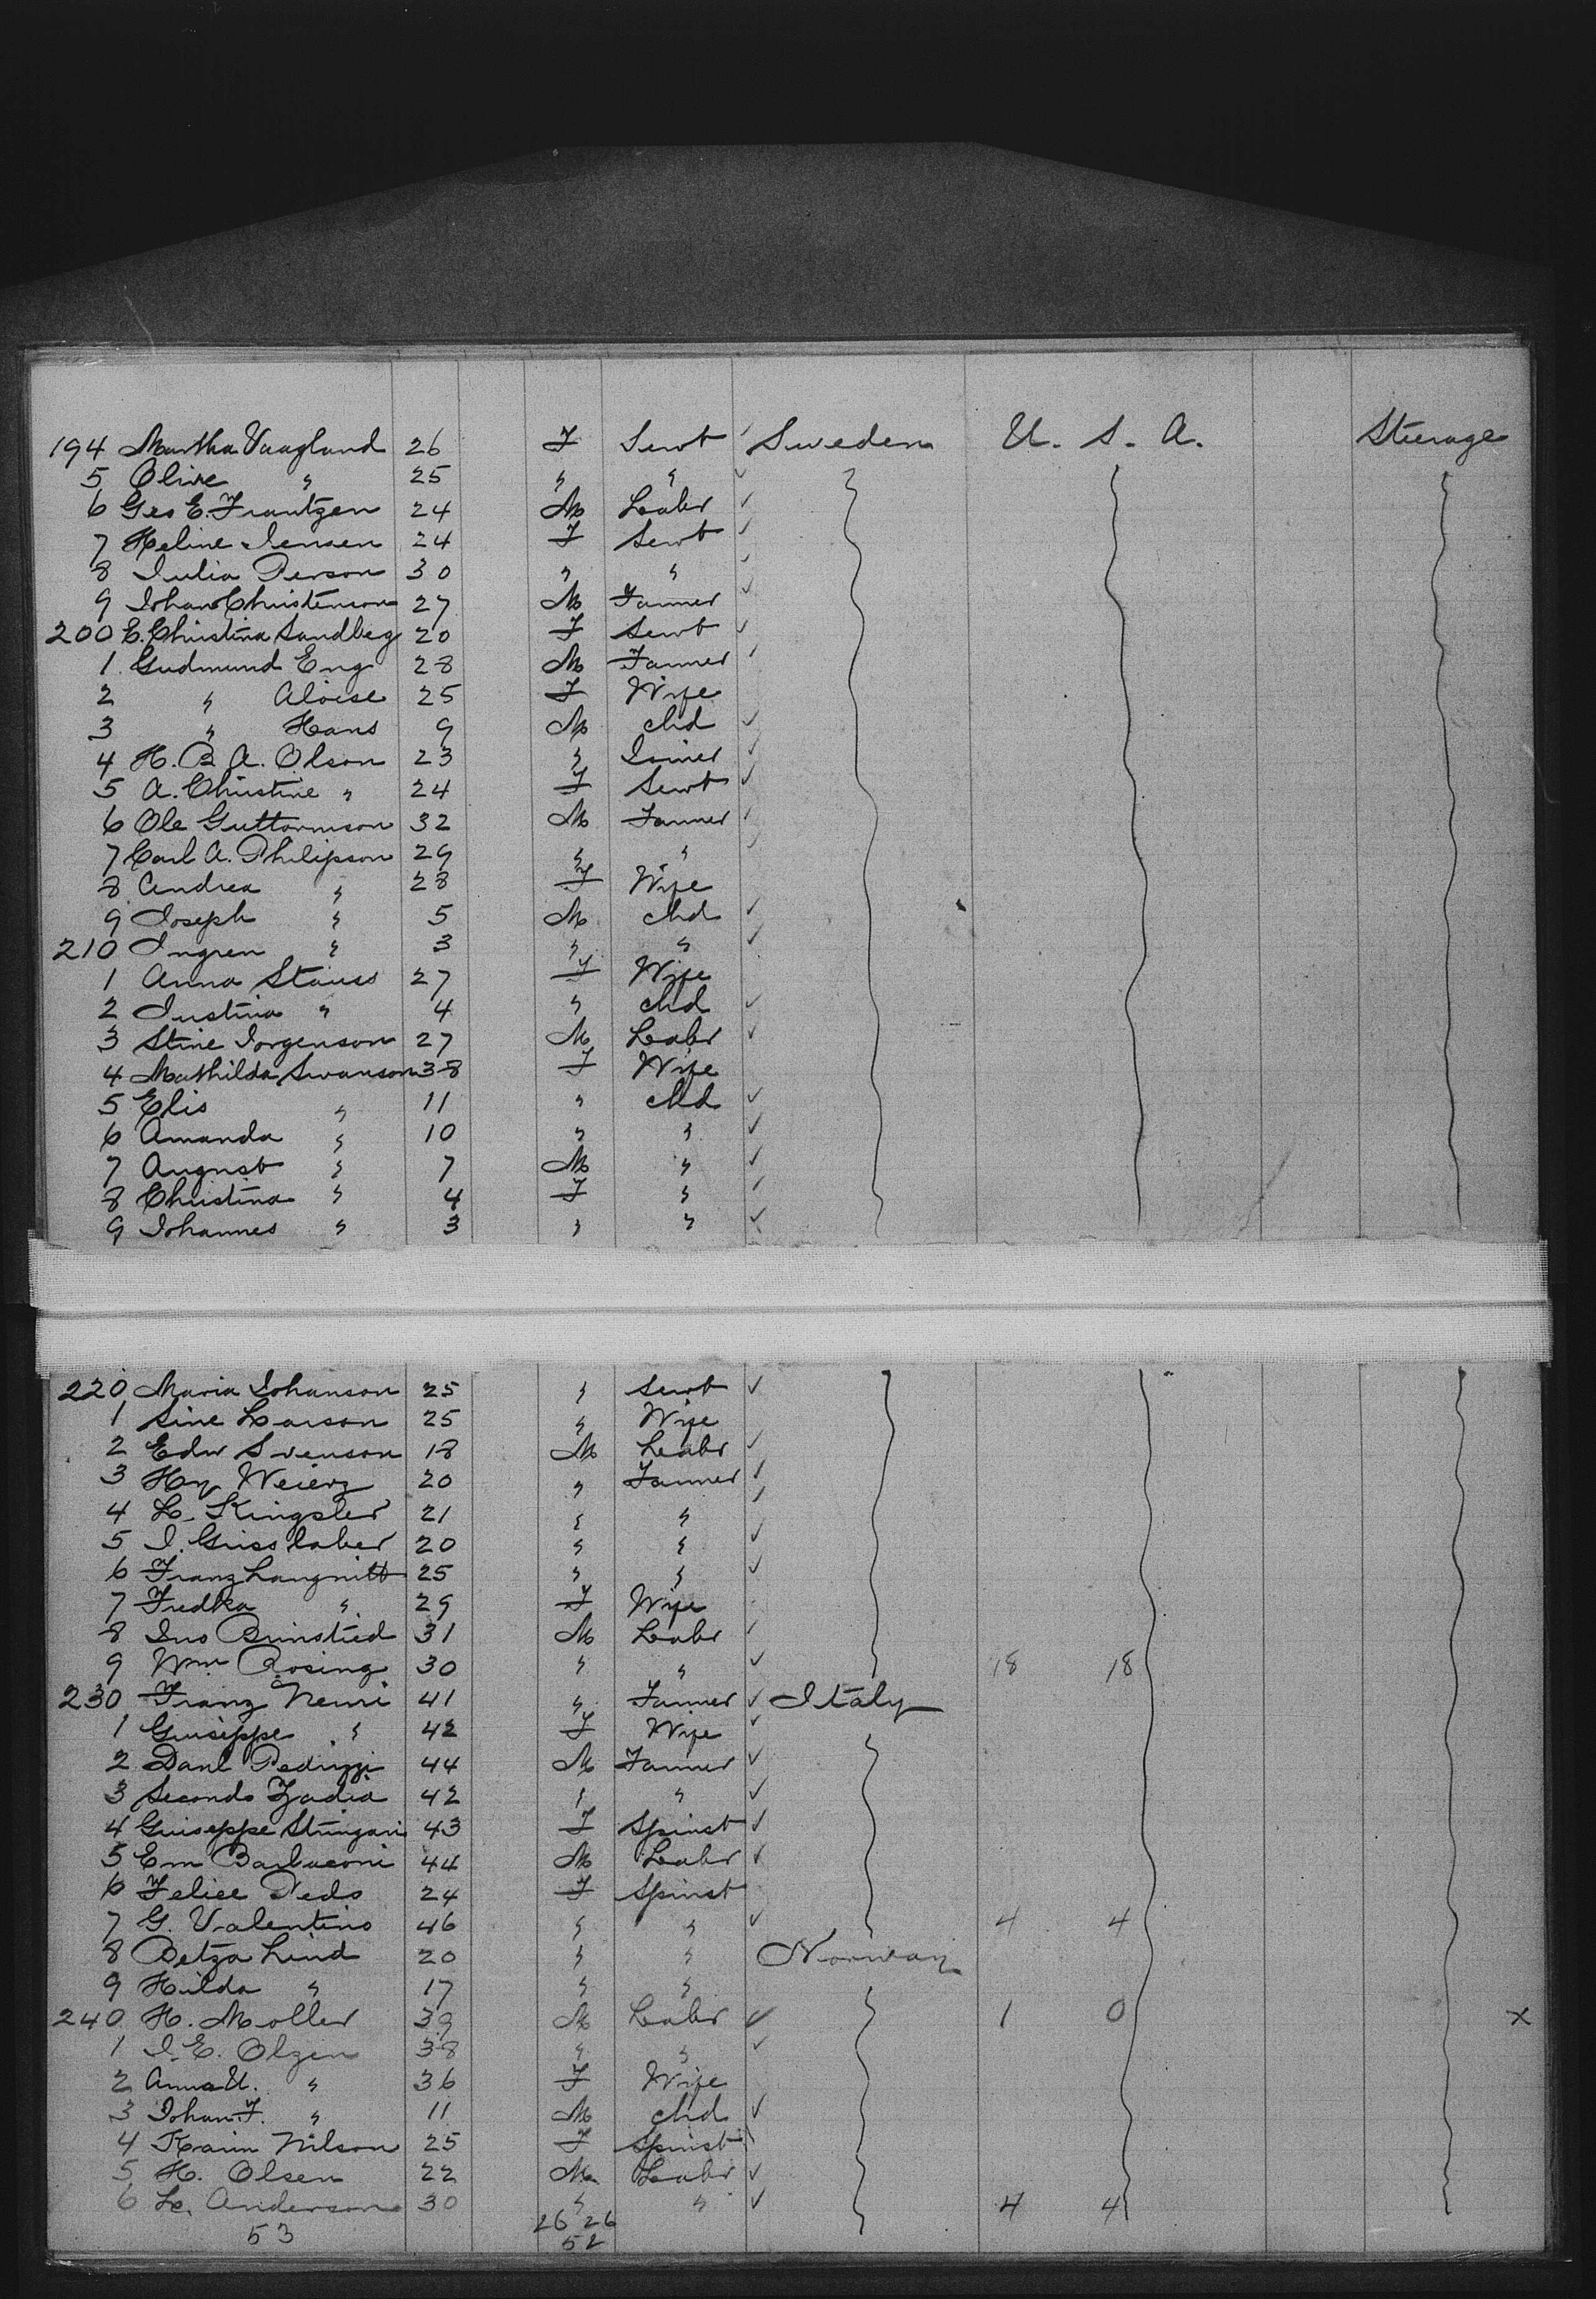 194 Martha Vaagland 26 F Servt ✓ Sweden U. S. A. Steerage
5 Olive " 25 " " ✓
6 Geo E. Frantzen 24 M Labr ✓
7 Heline Jensen 24 F Servt ✓
8 Julia Person 30 " " ✓
9 Johan Christenson 27 M Farmer ✓
200 E. Christina Sandberg 20 F Servt ✓
1 Gudmund Eng 28 M Farmer ✓
2 " Aloise 25 F Wife
3 " Hans 9 M chd ✓
4 H. B. A. Olson 23 " Joiner ✓
5 A. Christine " 24 F Servt ✓
6 Ole Guttormson 32 M Farmer ✓
7 Carl A. Philipson 29 " " ✓
8 Andrea " 28 F Wife
9 Joseph " 5 M chd ✓
210 Ingren " 3 " " ✓
1 Anna Stauss 27 F Wife
2 Justina " 4 " chd ✓
3 Stine Jorgenson 27 M Labr ✓
4 Mathilda Swanson 38 F Wife
5 Elis " 11 " chd ✓
6 Amanda " 10 " " ✓
7 August " 7 M " ✓
8 Christina " 4 F " ✓
9 Johannes " 3 " " ✓
220 Maria Johanson 25 " Servt ✓
1 Sine Larson 25 " Wife
2 Edw Svenson 18 M Labr ✓
3 Hy Weierz 20 " Farmer ✓
4 L. Kingsler 21 " " ✓
5 J. Grisslaber 20 " " ✓
6 Franz Langnitt 25 " " ✓
7 Fredka " 29 F Wife
8 Jno Brinstied 31 M Labr ✓
9 Wm Rosing 30 " " ✓ 18 18
230 Franz Nenri 41 " Farmer ✓ Italy
1 Guiseppe " 42 F Wife ✓
2 Danl Pedrizzi 44 M Farmer ✓
3 Secondo Zadia 42 " " ✓
4 Guiseppe Stringari 43 F Spinst ✓
5 Em Barbaconi 44 M Labr ✓
6 Felice Peds 24 F Spinst
7 G. Valentino 46 " " ✓ 4 4
8 Betza Lind 20 " " Norway
9 Hilda " 17 " "
240 H. Moller 39 M Labr ✓ 1 0 x
1 J. E. Olzen 38 " " ✓
2 Anna U. " 36 F Wife
3 Johan F. " 11 M chd ✓
4 Karin Nilson 25 F Spinst
5 H. Olsen 22 M Labr ✓
6 L. Anderson 30 " " ✓ 4 4
53 26 26
52